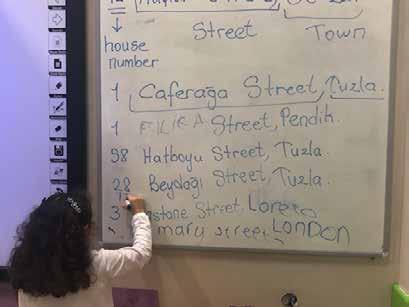 Street Town
house
number
1 Caferağa Street, Tuzla.
1 Street, Pendik.
98 Hatboyu Street, Tuzla.
28 Beydağı Street, Tuzla.
3 Street,
mary street LONDON